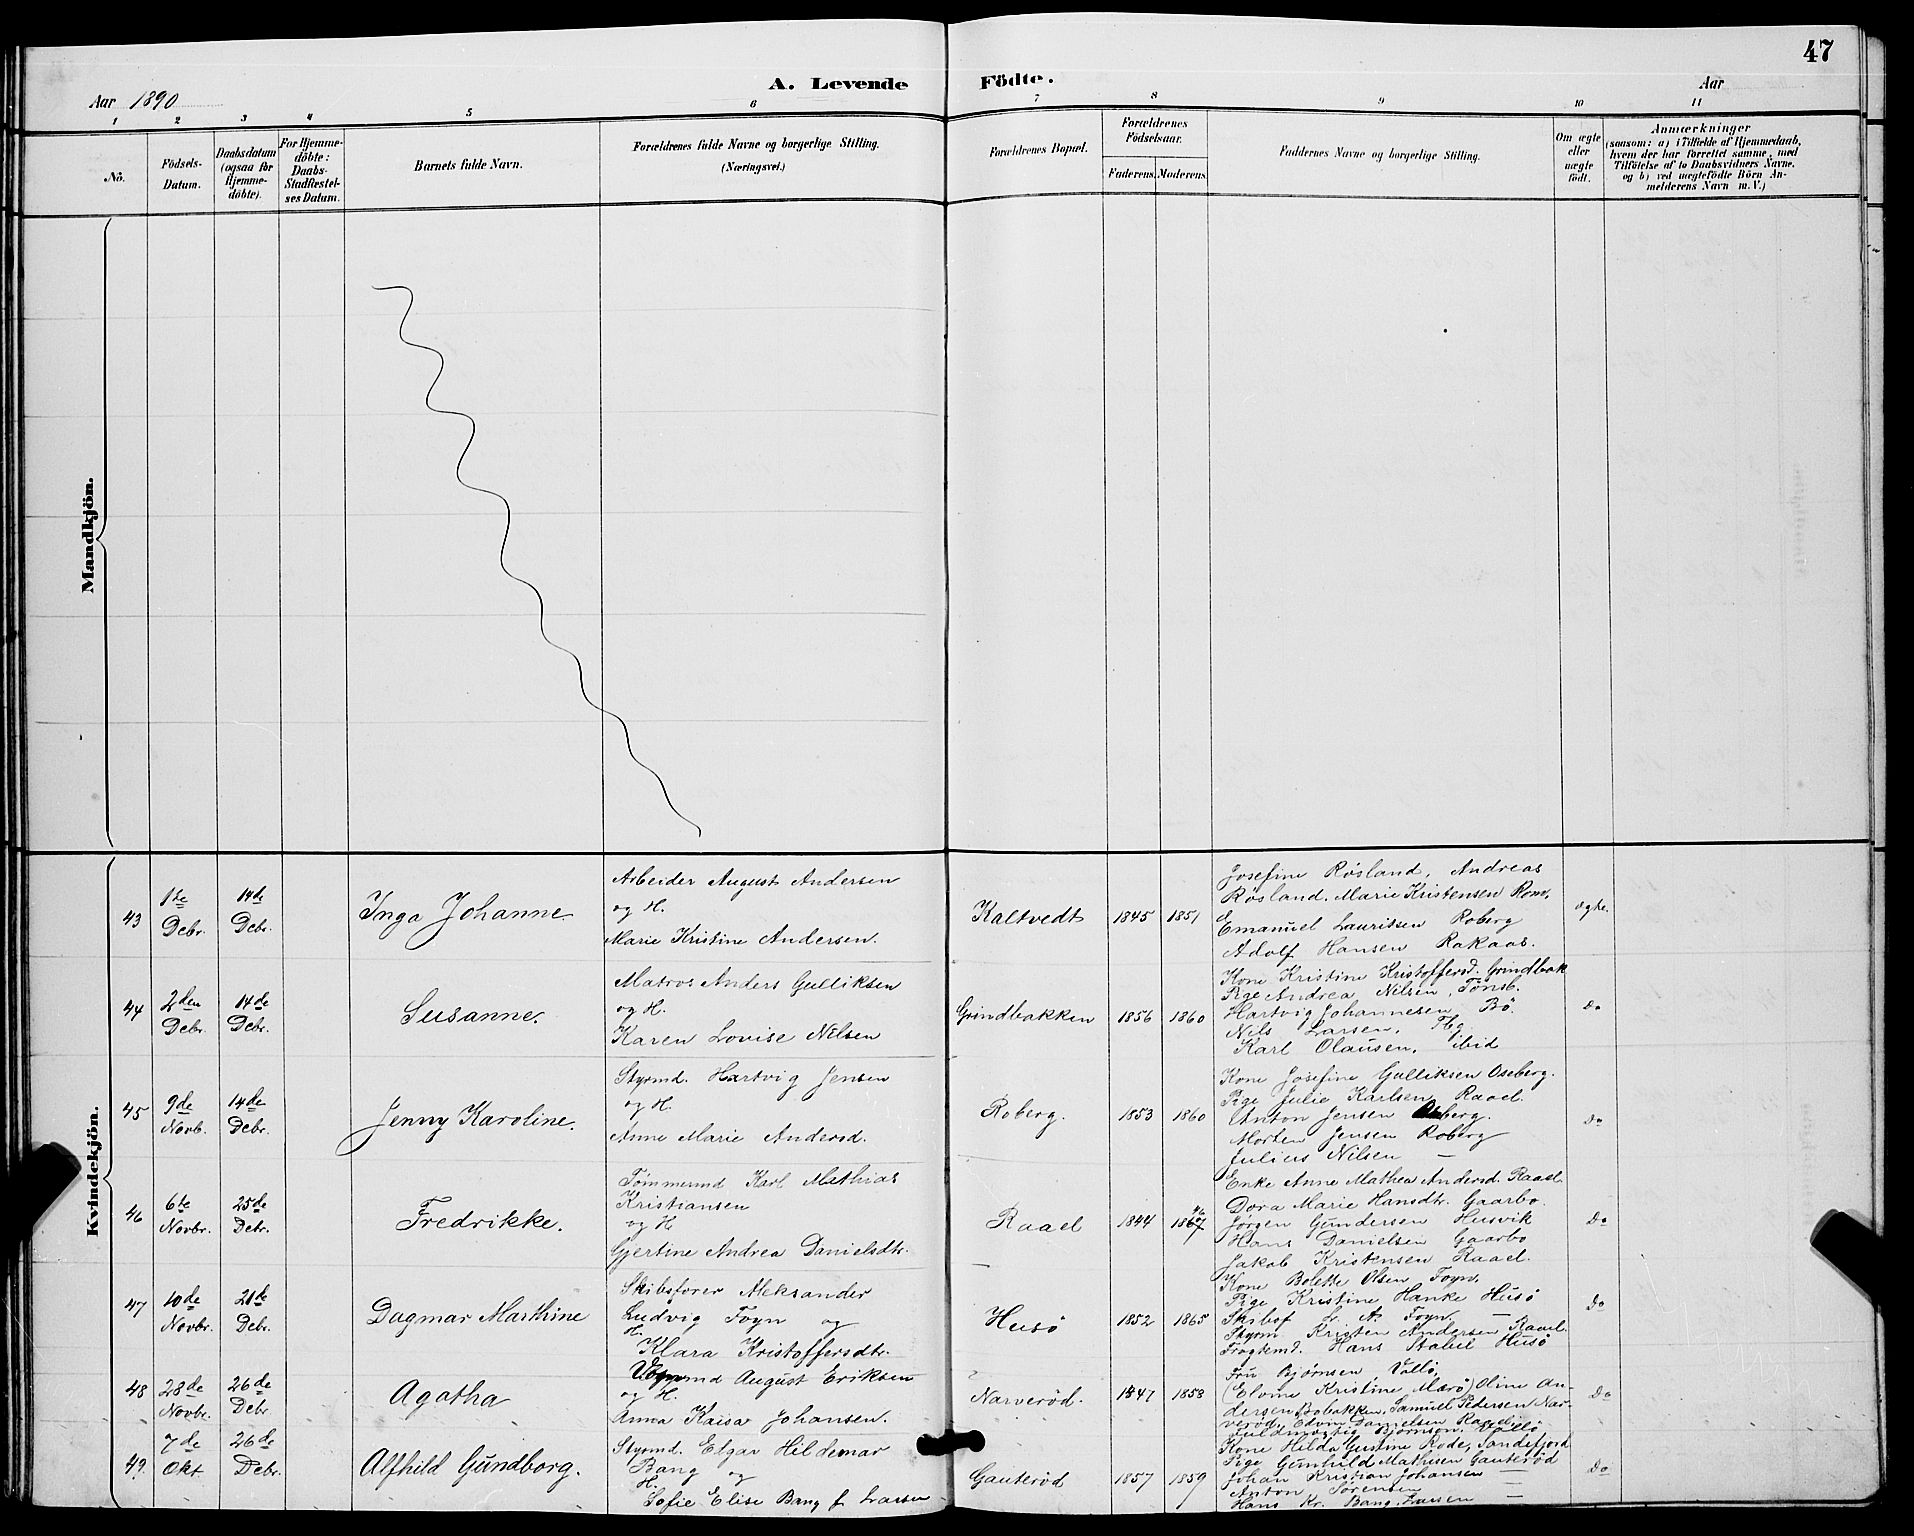 47
Aar 1890
A. Levende
Födte.
Aar
1 2 3 4 5 6 7 8 9 10 11
No.
Födsels-
Datum.
Daabsdatum
(ogsaa for
Hjemme-
döbte).
For Hjemme-
döbte:
Daabs-
Stadfæstel-
ses Datum.
Barnets fulde Navn.
Forældrenes fulde Navne og borgerlige Stilling.
(Næringsvei.)
Forældrenes Bopæl.
Forældrenes
Födselsaar.
Faderens. Moderens.
Faddernes Navne og borgerlige Stilling.
Om ægte
eller
uægte
født.
Anmærkninger
(saasom: a) i Tilfælde af Hjemmedaab,
hvem der har forrettet samme, med
Tilföielse af to Daabsvidners Navne.
og b) ved uægtefödte Börn An-
melderens Navn m. V.)
Mandkjön.
Kvindekjön.
43
1ste
Debr.
14de
Debr.
Inga Johanne
Arbeider August Andersen
og H.
Marie Kristine Andersen.
Kaltvedt
1845
1851
Josefine Røsland, Andreas
Røsland. Marie Kristensen Rom.
Emanuel Lauritsen Roberg
Adolf Hansen Rakaas.
ægte.
44
2den
Debr.
14de
Debr.
Susanne.
Matros Anders Gulliksen
og H.
Karen Lovise Nilsen
Grindbakken
1856
1860
Kone Kristine Kristoffersd. Grindbak
Pige Andrea Nilsen, Tönsb.
Hartvig Johannesen Bö.
Nils Larsen, Tbg
Karl Olausen, ibid
Do
45
9de
Novb.
14de
Debr.
Jenny Karoline.
Styrmd. Hartvig Jensen
og H.
Anne Marie Andersd.
Roberg.
1853
1860
Kone Josefine Gulliksen Oseberg.
Pige Julie Karlsen Raael
Anton Jensen berg.
Morten Jensen Roberg
Julius Nilsen —
Do
46
6te
Novbr.
25de
Debr.
Fredrikke.
Tømmermd Karl Mathias
Kristiansen
og H
Gjertine Andrea Danielsdtr.
Raael
1844
1867
46
Enke Anne Mathea Andersd. Raael
Dora Marie Hansdtr. Gaarbo.
Jørgen Gundersen Husvik
Hans Danielsen Gaarbo
Jakob Kristensen Raael.
Do
47
10de
Novbr.
21de
Debr.
Dagmar Marthine
Skibsfører Aleksander
Ludvig Foyn og
H.
Klara Kristoffersdtr.
Husö
1852
1865
Kone Bolette Olsen Foyn.
Pige Kristine Hanke Husö
Skibsf L. A. Foyn —
Styrm Kristen Andersen Raael.
Fragtemd. Hans Stabel Husö
Do
48
28de
Novbr.
26de
Debr
Agatha
August Eriksen
og H.
Anna Kaisa Johansen.
Narverød.
1847
1853
Fru Bjørnsen, Vallö,
(Elvine Kristine Marö) Oline An-
dersen Bobakken, Samuel Pedersen Nar-
verød, Edvin Danielsen Raael
Fuldmægtig Bjørnson, Vallö
Do
49
7de
Okt
26de
Debr.
Alfhild Gundborg.
Styrmd. Elgar Hildemar
Bang og
H.
Sofie Elise Bang f Larsen
Gauterød
1857
1859
Kone Hilda Gustine Rode, Sandefjord
Pige Gunhild Mathisen Gauterød
Johan Kristian Johansen —
Anton Sörensen —
Hans Kr. Bang Larsen —
Do